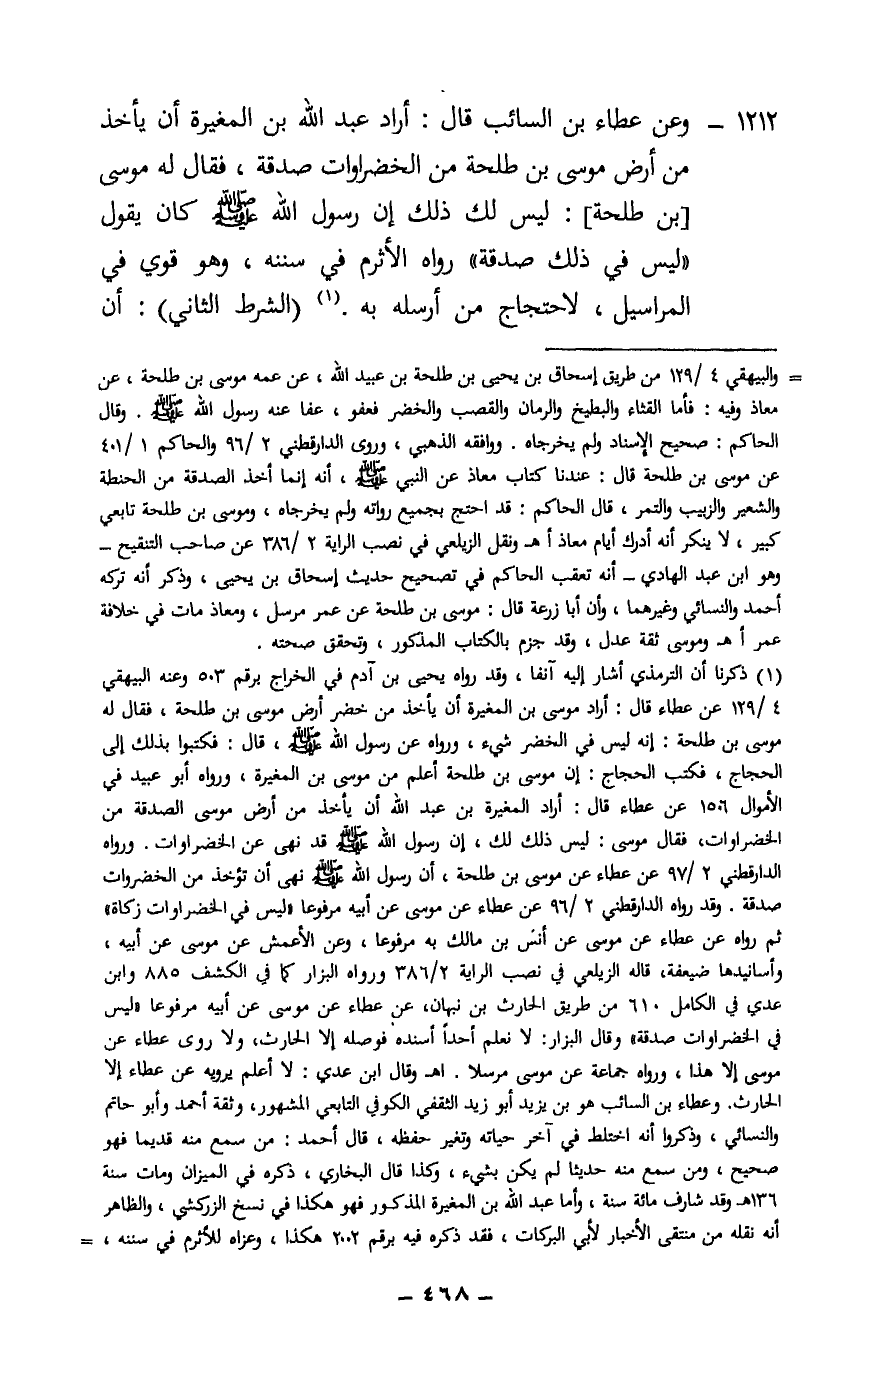 ١٢١٢ ــ وعن عطاء بن السائب قال : أراد عبد الله بن المغيرة أن يأخذ
من أرض موسى بن طلحة من الخضراوات صدقة ، فقال له موسى
[بن طلحة] : ليس لك ذلك إن رسول الله ﷺ كان يقول
«ليس في ذلك صدقة» رواه الأثرم في سننه ، وهو قوي في
المراسيل ، لاحتجاج من أرسله به .(١) (الشرط الثاني) : أن
= والبيهقي ٤ /١٢٩ من طريق إسحاق بن يحيى بن طلحة بن عبيد الله ، عن عمه موسى بن طلحة ، عن
معاذ وفيه : فأما القثاء والبطيخ والرمان والقصب والخضر فعفو ، عفا عنه رسول الله ﷺ . وقال
الحاكم : صحيح الإسناد ولم يخرجاه . ووافقه الذهبي ، وروى الدارقطني ٢ /٩٦ والحاكم ١ /٤٠١
عن موسى بن طلحة قال : عندنا كتاب معاذ عن النبي ﷺ ، أنه إنما أخذ الصدقة من الحنطة
والشعير والزبيب والتمر ، قال الحاكم : قد احتج بجميع رواته ولم يخرجاه ، وموسى بن طلحة تابعي
كبير ، لا ينكر أنه أدرك أيام معاذ أ هـ ونقل الزيلعي في نصب الراية ٢ /٣٨٦ عن صاحب التنقيح ــ
وهو ابن عبد الهادي ــ أنه تعقب الحاكم في تصحيح حديث إسحاق بن يحيى ، وذكر أنه تركه
أحمد والنسائي وغيرهما ، وأن أبا زرعة قال : موسى بن طلحة عن عمر مرسل ، ومعاذ مات في خلافة
عمر أ هـ وموسى ثقة عدل ، وقد جزم بالكتاب المذكور ، وتحقق صحته .
(١) ذكرنا أن الترمذي أشار إليه آنفا ، وقد رواه يحيى بن آدم في الخراج برقم ٥٠٣ وعنه البيهقي
٤ /١٢٩ عن عطاء قال : أراد موسى بن المغيرة أن يأخذ من خضر أرض موسى بن طلحة ، فقال له
موسى بن طلحة : إنه ليس في الخضر شيء ، ورواه عن رسول الله ﷺ ، قال : فكتبوا بذلك إلى
الحجاج ، فكتب الحجاج : إن موسى بن طلحة أعلم من موسى بن المغيرة ، ورواه أبو عبيد في
الأموال ١٥٠٦ عن عطاء قال : أراد المغيرة بن عبد الله أن يأخذ من أرض موسى الصدقة من
الخضراوات، فقال موسى : ليس ذلك لك ، إن رسول الله ﷺ قد نهى عن الخضراوات . ورواه
الدارقطني ٢ /٩٧ عن عطاء عن موسى بن طلحة ، أن رسول الله ﷺ نهى أن تؤخذ من الخضروات
صدقة . وقد رواه الدارقطني ٢ /٩٦ عن عطاء عن موسى عن أبيه مرفوعا «ليس في الخضراوات زكاة»
ثم رواه عن عطاء عن موسى عن أنس بن مالك به مرفوعا ، وعن الأعمش عن موسى عن أبيه ،
وأسانيدها ضيعفة، قاله الزيلعي في نصب الراية ٣٨٦/٢ ورواه البزار كما في الكشف ٨٨٥ وابن
عدي في الكامل ٦١٠ من طريق الحارث بن نبهان، عن عطاء عن موسى عن أبيه مرفوعا «ليس
في الخضراوات صدقة» وقال البزار: لا نعلم أحداً أسنده فوصله إلا الحارث، ولا روى عطاء عن
موسى إلا هذا ، ورواه جماعة عن موسى مرسلا . اهـ وقال ابن عدي : لا أعلم يرويه عن عطاء إلا
الحارث. وعطاء بن السائب هو بن يزيد أبو زيد الثقفي الكوفي التابعي المشهور، وثقة أحمد وأبو حاتم
والنسائي ، وذكروا أنه اختلط في آخر حياته وتغير حفظه ، قال أحمد : من سمع منه قديما فهو
صحيح ، ومن سمع منه حديثا لم يكن بشيء ، وكذا قال البخاري ، ذكره في الميزان ومات سنة
١٣٦هـ وقد شارف مائة سنة ، وأما عبد الله بن المغيرة المذكور فهو هكذا في نسخ الزركشي ، والظاهر
أنه نقله من منتقى الأخبار لأبي البركات ، فقد ذكره فيه برقم ٢٠٠٢ هكذا ، وعزاه للأثرم في سننه ، =
ــ ٤٦٨ ــ